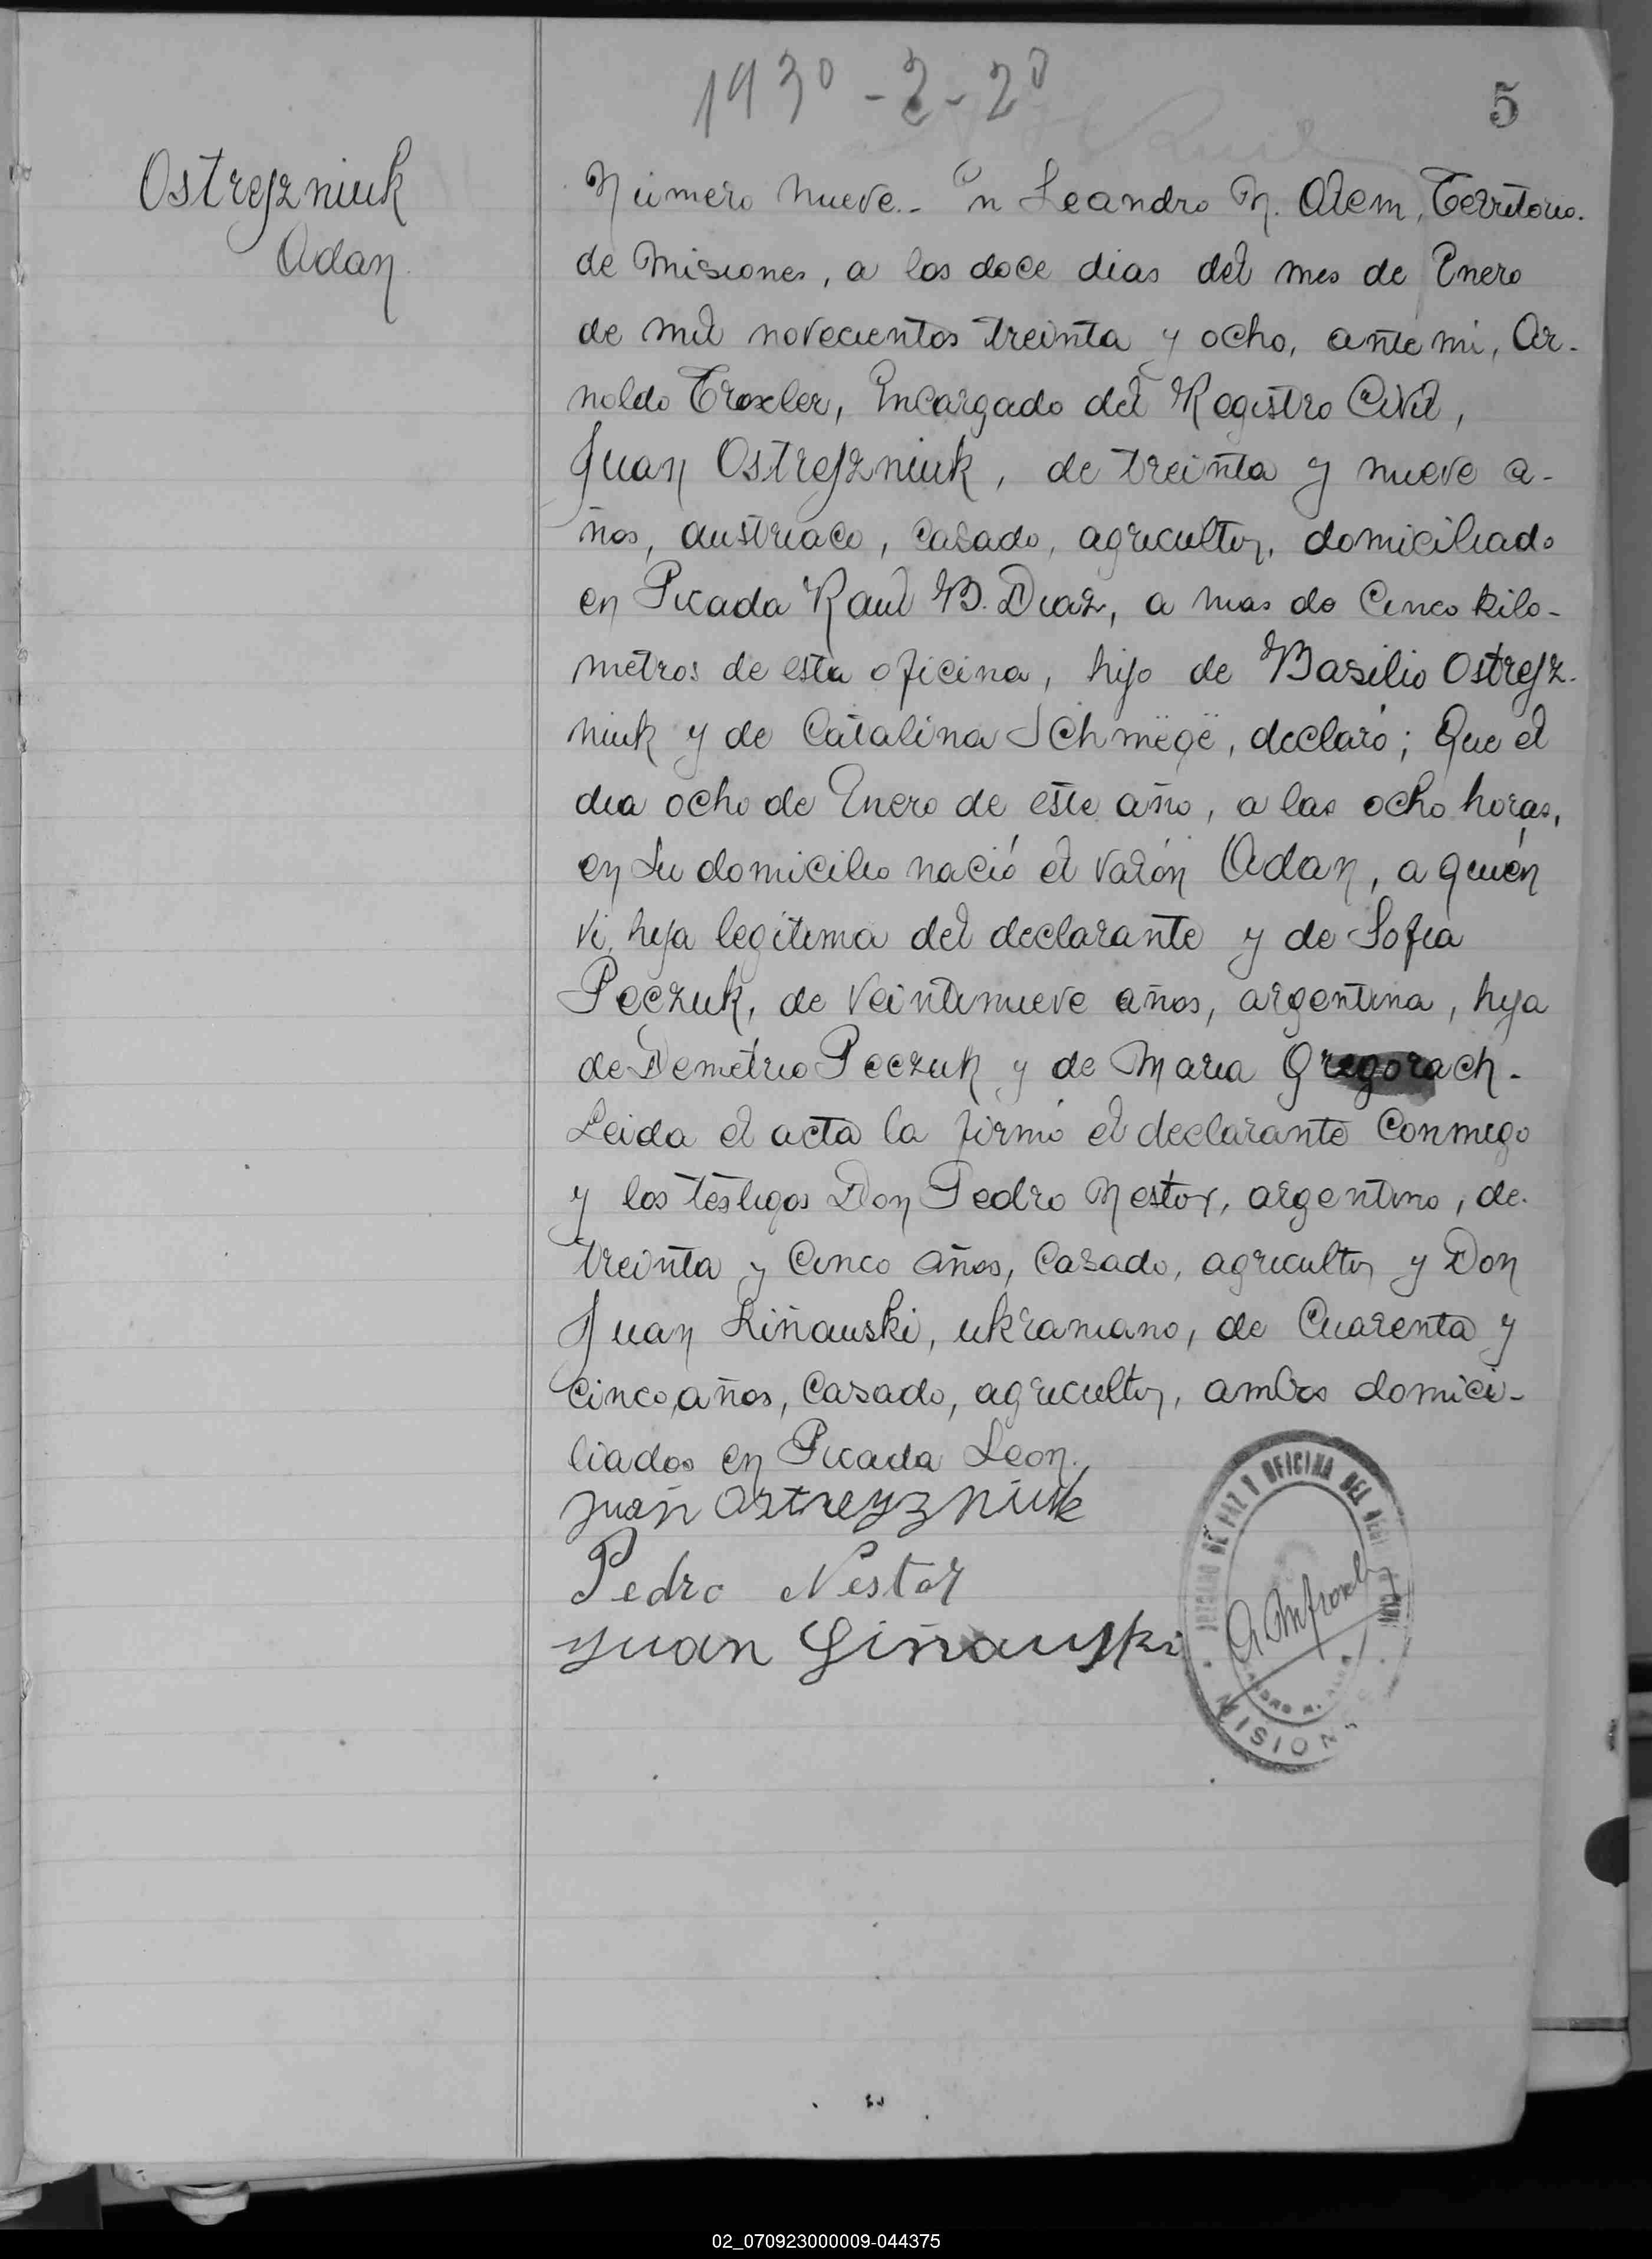 1930-2-20
5
Ostrejzniuk
Adan
Número nueve.- En Leandro N. Alem, Territorio.
de Misiones, a los doce dias del mes de Enero
de mil novecientos treinta y ocho, ante mi, Ar-
noldo Troxler, Encargado del Registro Civil,
Juan Ostrejzniuk, de treinta y nueve a-
ños, austriaco, casado, agricultor, domiciliado
en Picada Raul B. Diaz, a mas de cinco kilo-
metros de esta oficina, hijo de Basilio Ostrejz-
niuk y de Catalina Schmëgë, declaró; Que el
dia ocho de Enero de este año, a las ocho horas,
en su domicilio nació el varón Adan, a quién
vi, hija legitima del declarante y de Sofia
Peczuk, de veintinueve años, argentina, hija
de Demetrio Peczuk y de Maria Gregorach.
Leida el acta la firmó el declarante conmigo
y los testigos Don Pedro Nestor, argentino, de.
treinta y cinco años, casado, agricultor y Don
Juan Liñauski, ukraniano, de cuarenta y
cinco años, casado, agricultor, ambos domici-
liados en Picada Leon.
Juan Ostreyzniuk
Pedro Nestor
Juan Liñauski
JUZGADO DE PAZ Y OFICINA DEL
MISIONES
02_070923000009-044375